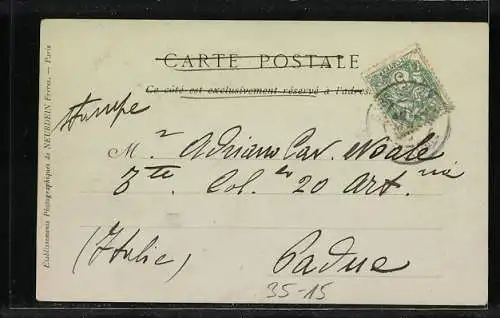 CARTE POSTALE
Ce côté est exclusivement réservé à l'adres
Stampe
M.r Adriano Cav. Noale
Ten. Col. 20 Art.ria
(Italie) Padue
35-15
Etablissements Photographiques de NEURDEIN Frères. — Paris